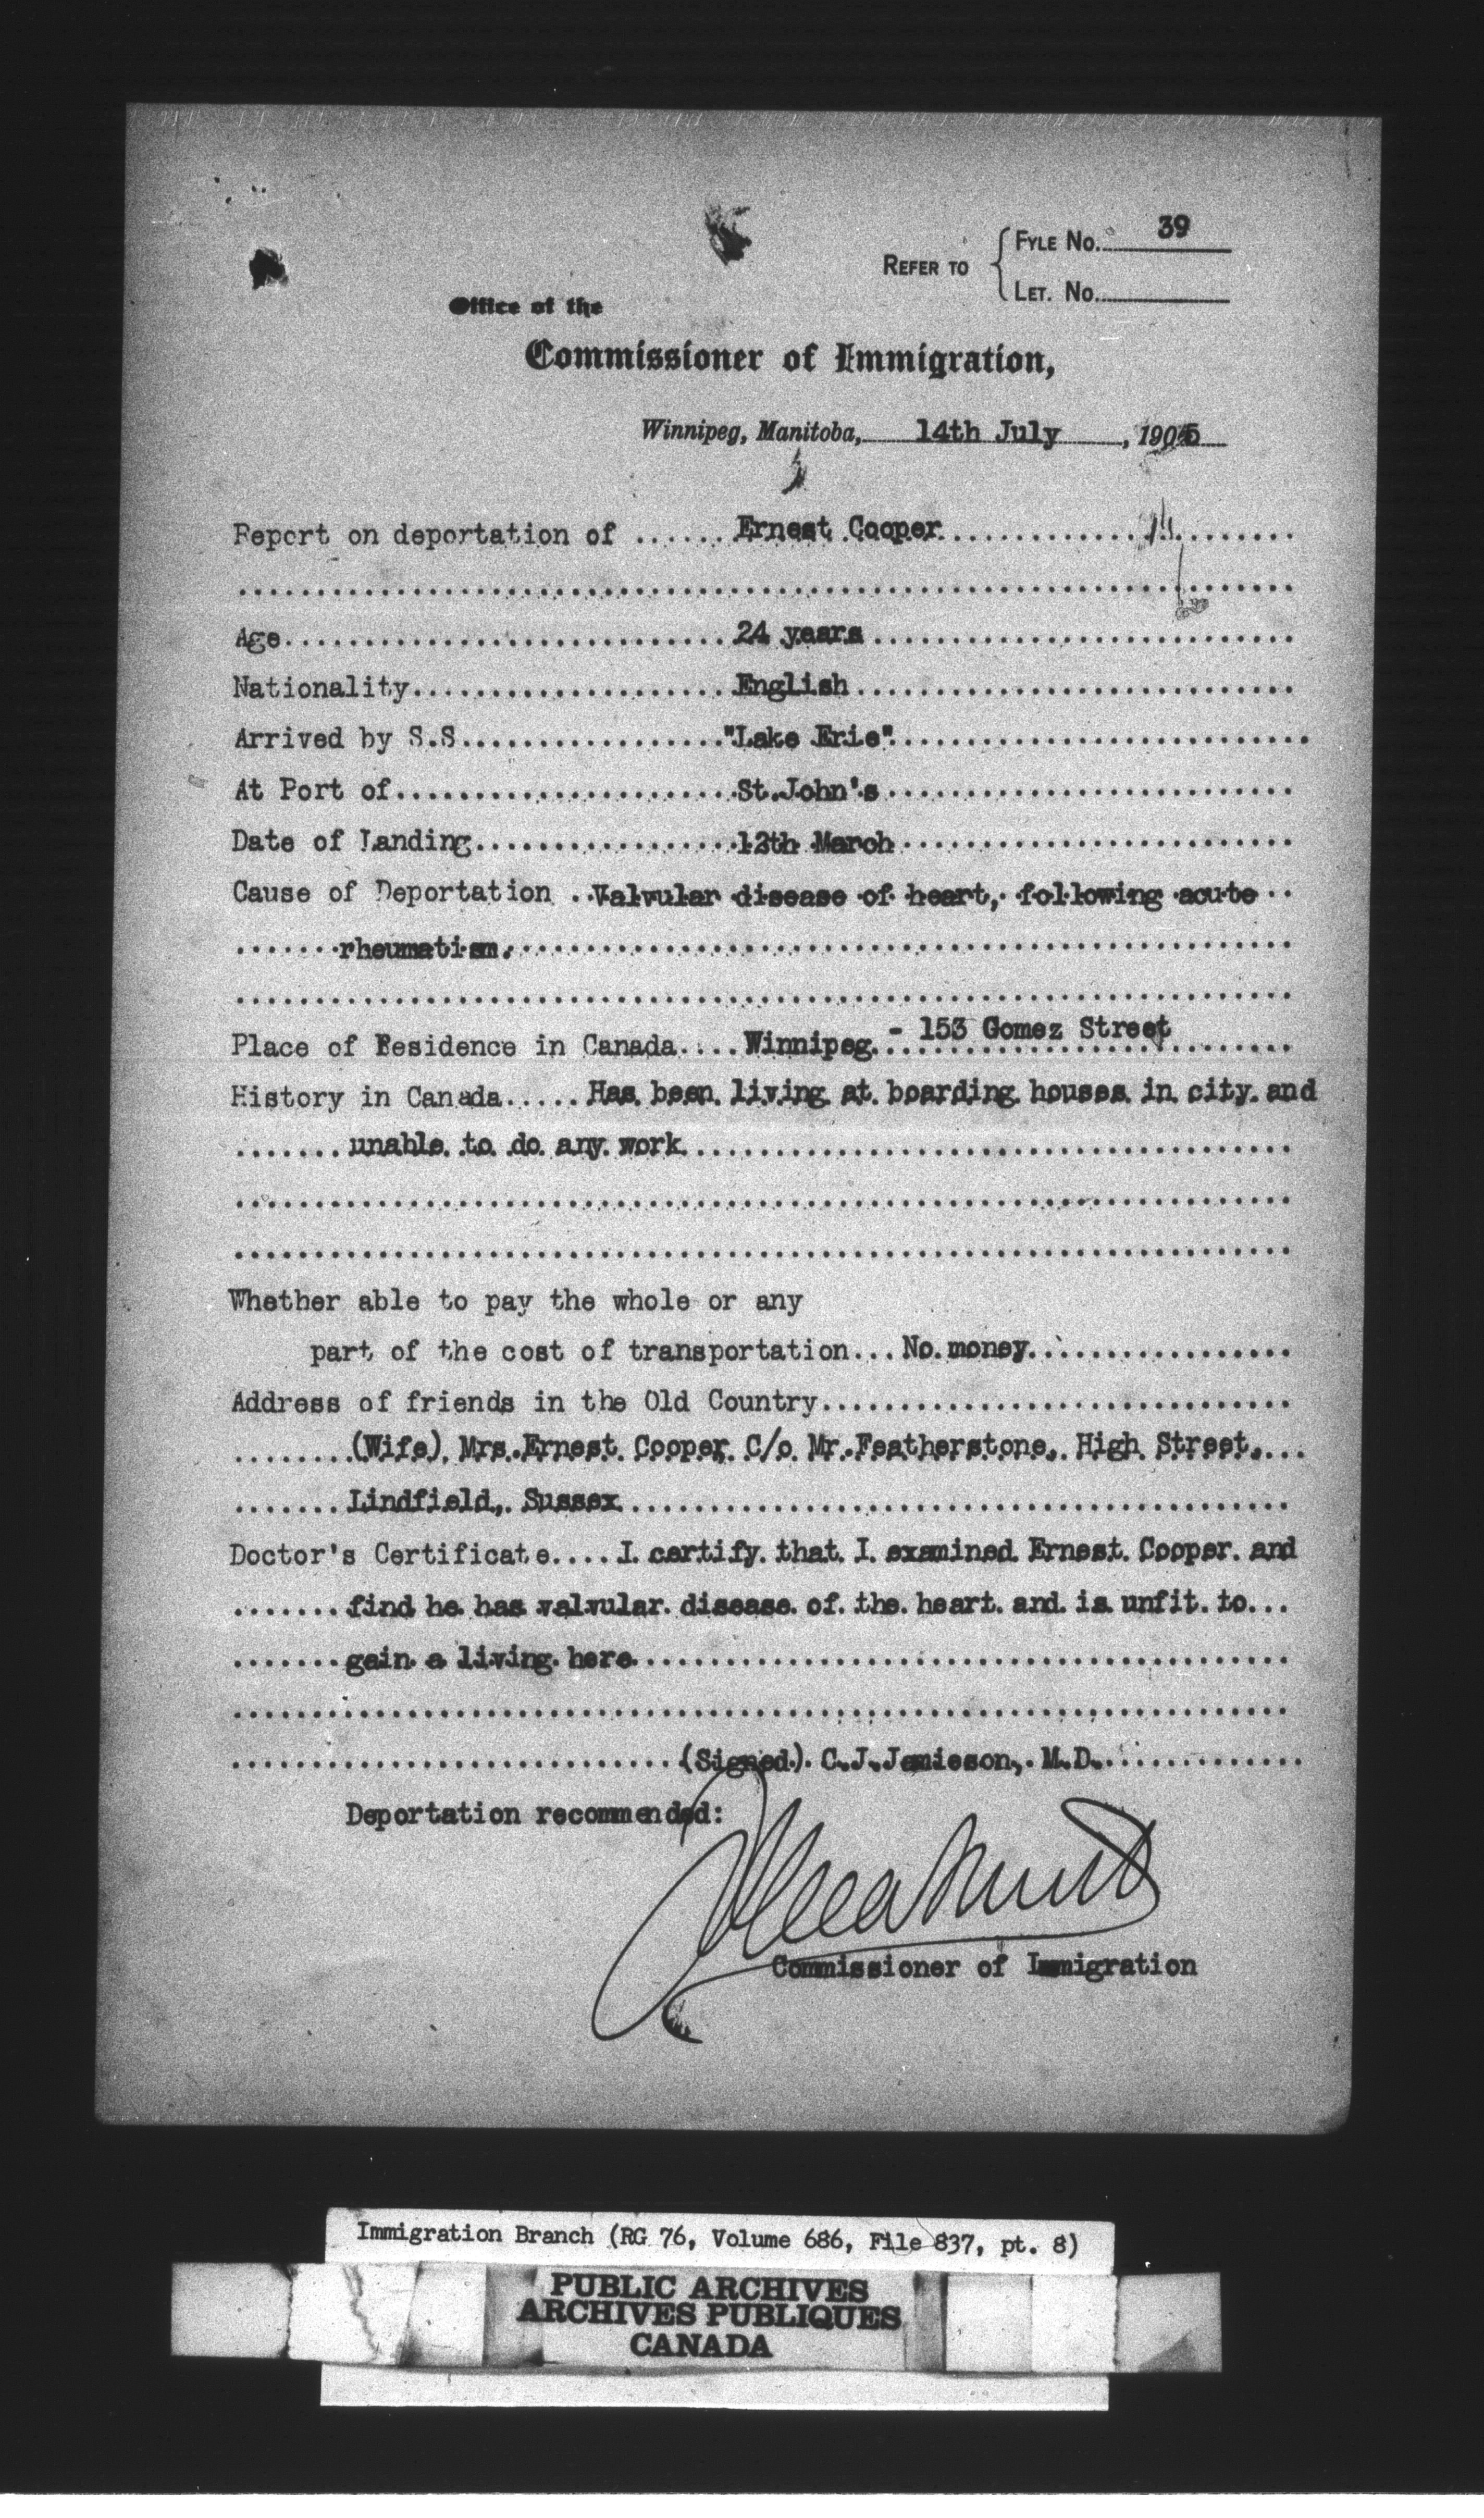 Refer to
Fyle No. 39
Let. No.
Office of the
Commissioner of Immigration,
Winnipeg, Manitoba, 14th July, 1905
Report on deportation of ...... Ernest Cooper
Age 24 years
Nationality English
Arrived by S.S. "Lake Erie"
At Port of St.John's
Date of Landing 12th March
Cause of Deportation .. Valvular disease of heart, following acute
rheumatism.
Place of Residence in Canada.... Winnipeg. - 153 Gomez Street
History in Canada..... Has been living at boarding houses in city and
unable to do any work
Whether able to pay the whole or any
part of the cost of transportation... No money.
Address of friends in the Old Country
(Wife) Mrs. Ernest Cooper, C/o Mr. Featherstone, High Street,
Lindfield, Sussex
Doctor's Certificate.... I certify that I examined Ernest Cooper and
find he has valvular disease of the heart and is unfit to
gain a living here
(Signed) C.J.Jamieson, M.D.
Deportation recommended:
Commissioner of Immigration
Immigration Branch (RG 76, Volume 686, File 837, pt. 8)
PUBLIC ARCHIVES
ARCHIVES PUBLIQUES
CANADA